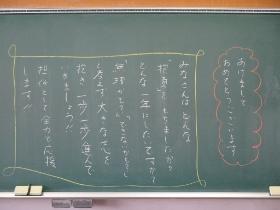 あけまして
おめでとうございます
みなさんは どんな
"抱負"をもちましたか
どんな一年にしたいですか?
"無理かも…""できないかも"と
考えず、大きな心を
抱き 一歩一歩進んで
いきましょう!!
担任として全力で応援
します!!